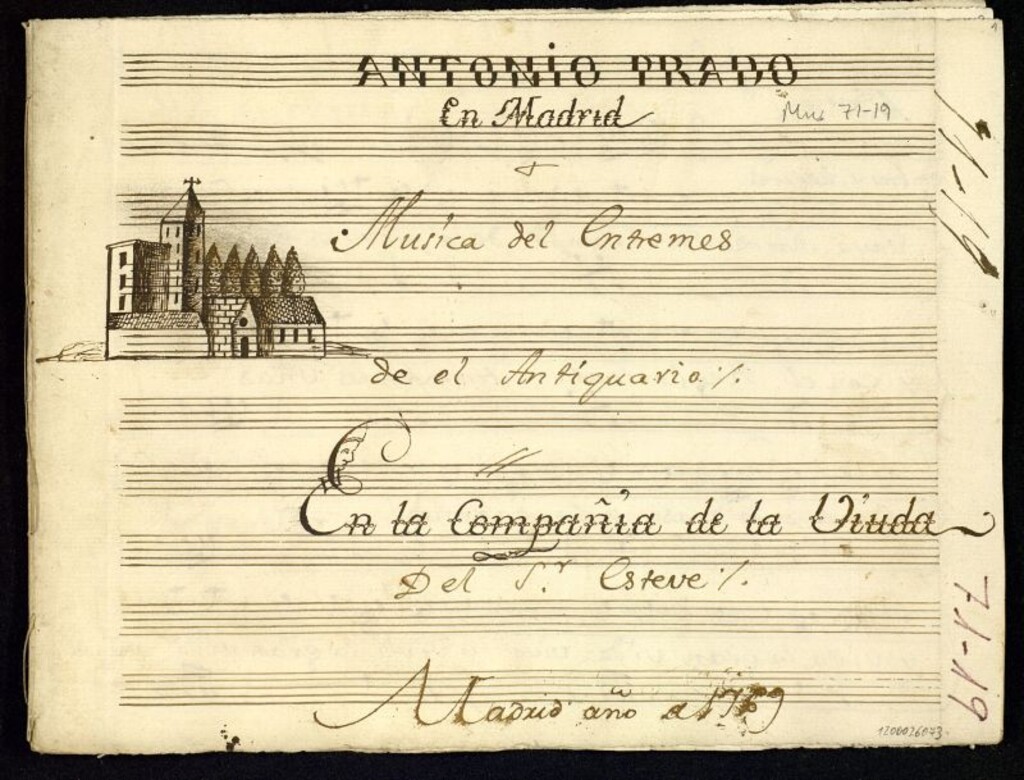 ANTONIO PRADO
En Madrid
Mus 71-19
71-19
Musica del Entremes
de el Antiquario %.
En la Compañia de la Viuda
Del S.r Esteve %.
71-19
Madrid año
1200026073